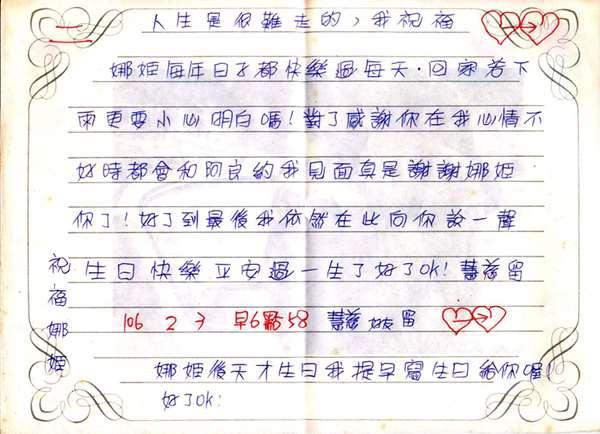 二
人生是很難走的，我祝福
娜姬每年日子都快樂過每天．回家若下
雨更要小心明白嗎！對了感謝你在我心情不
好時都會和阿良約我見面真是謝謝娜姬
你了！好了到最後我依然在此向你說一聲
生日快樂平安過一生了好了OK！慧慈留
祝福娜姬
106 2 3 早6點58 慧慈好友留
娜姬後天才生日我提早寫生日給你喔！
好了OK！